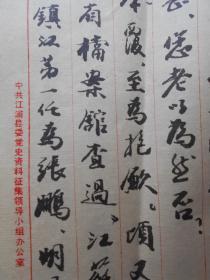 意。您老以为然否？
不霞，至为抱歉。顷又
省檔案館查过《江蘇
鎮江第一任为张鵬，明
中共江浦县委党史资料征集领导小组办公室